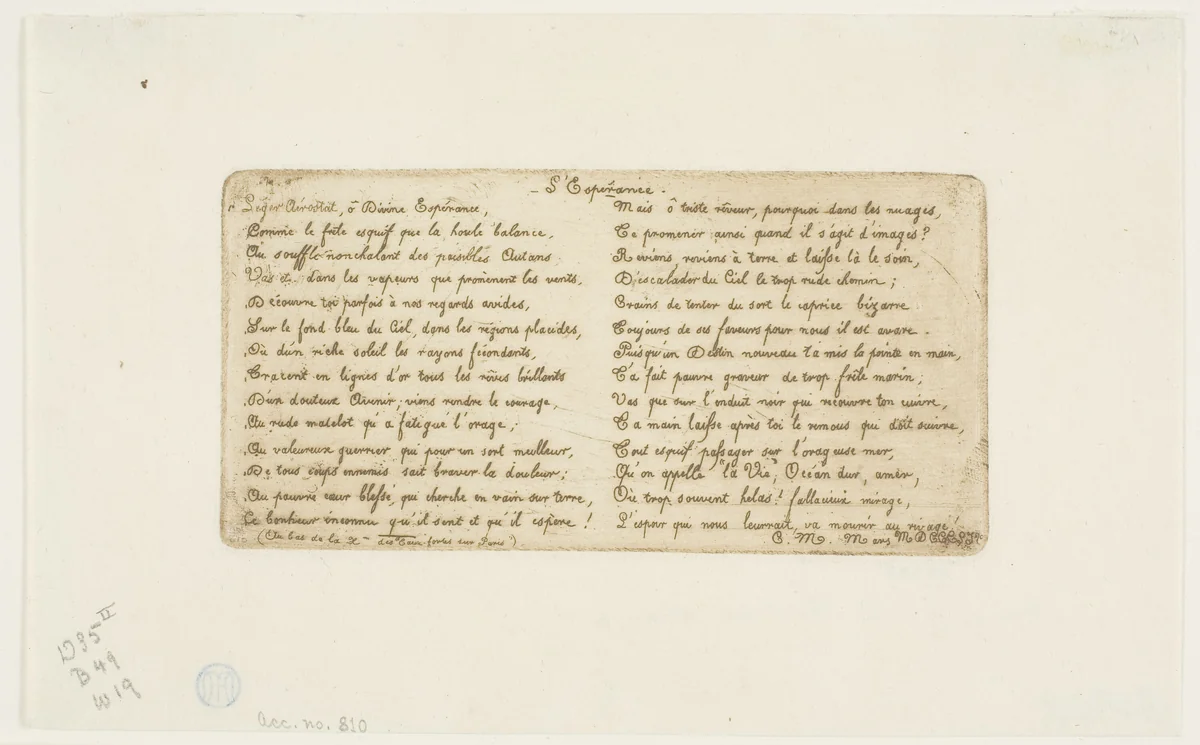 - L'Espérance -
Léger Aérostat, ô Divine Espérance,
Comme le frêle esquif que la houle balance,
Au souffle nonchalant des paisibles Autans
Vas et dans les vapeurs que promènent les vents,
Découvre toi parfois à nos regards avides,
Sur le fond bleu du Ciel, dans les régions placides,
Où d'un riche soleil les rayons fécondants,
Tracent en lignes d'or tous les rêves brillants
D'un douteux Avenir; viens rendre le courage,
Au rude matelot qu'a fatigué l'orage;
Au valeureux guerrier qui pour un sort meilleur,
De tous coups ennemis sait braver la douleur;
Au pauvre cœur blessé, qui cherche en vain sur terre,
Ce bonheur inconnu qu'il sent et qu'il espère!
(Au bas de la X- des "Eaux-fortes sur Paris")
Mais ô triste rêveur, pourquoi dans les nuages,
Te promener ainsi quand il s'agit d'images?
Reviens, reviens à terre et laisse là le soin,
D'escalader du Ciel le trop rude chemin;
Crains de tenter du sort le caprice bizarre
Toujours de ses faveurs pour nous il est avare.
Puisqu'un Destin nouveau t'a mis la pointe en main,
T'a fait pauvre graveur de trop frêle marin;
Vas que sur l'enduit noir qui recouvre ton cuivre,
Ta main laisse après toi le remous qui doit suivre,
Tout esquif passager sur l'orageuse mer,
Qu'on appelle "la Vie", Océan dur, amer,
Où trop souvent helas! fallacieux mirage,
L'espoir qui nous leurrait, va mourir au rivage!
C. M. Mars
D95 II
B 49
W 19
Acc. no. 810